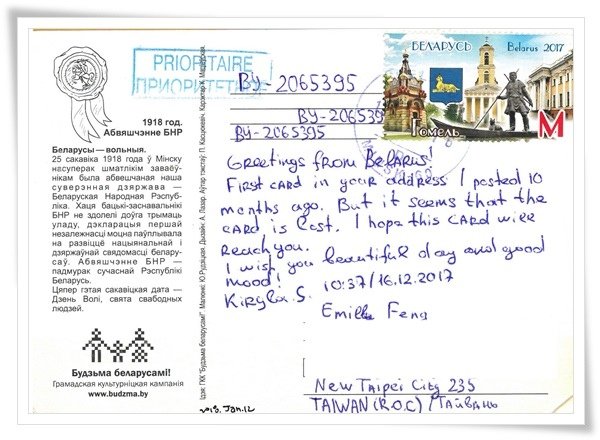 1918 год.
Абвяшчэнне БНР
Беларусы — вольныя.
25 сакавіка 1918 года ў Мінску
насуперак шматлікім заваёў-
нікам была абвешчаная наша
суверэнная дзяржава —
Беларуская Народная Рэспуб-
ліка. Хаця бацькі-заснавальнікі
БНР не здолелі доўга трымаць
уладу, дэкларацыя першай
незалежнасці моцна паўплывала
на развіццё нацыянальнай і
дзяржаўнай свядомасці белару-
саў. Абвяшчэнне БНР —
падмурак сучаснай Рэспублікі
Беларусь.
Цяпер гэтая сакавіцкая дата —
Дзень Волі, свята свабодных
людзей.
Будзьма беларусамі!
Грамадская культурніцкая кампанія
www.budzma.by
2018. Jan.12
PRIORITAIRE
ПРИОРИТЕТ
БЕЛАРУСЬ
Belarus 2017
Гомель
M
BY-2065395
BY-2065395
BY-2065395
Greetings from Belarus!
First card in your address I posted 10
months ago. But it seems that the
card is lost. I hope this card will
reach you.
I wish you beautiful day and good
mood!
10:37/16.12.2017
S.
Feng
New Taipei City 235
TAIWAN (R.O.C) / Тайвань